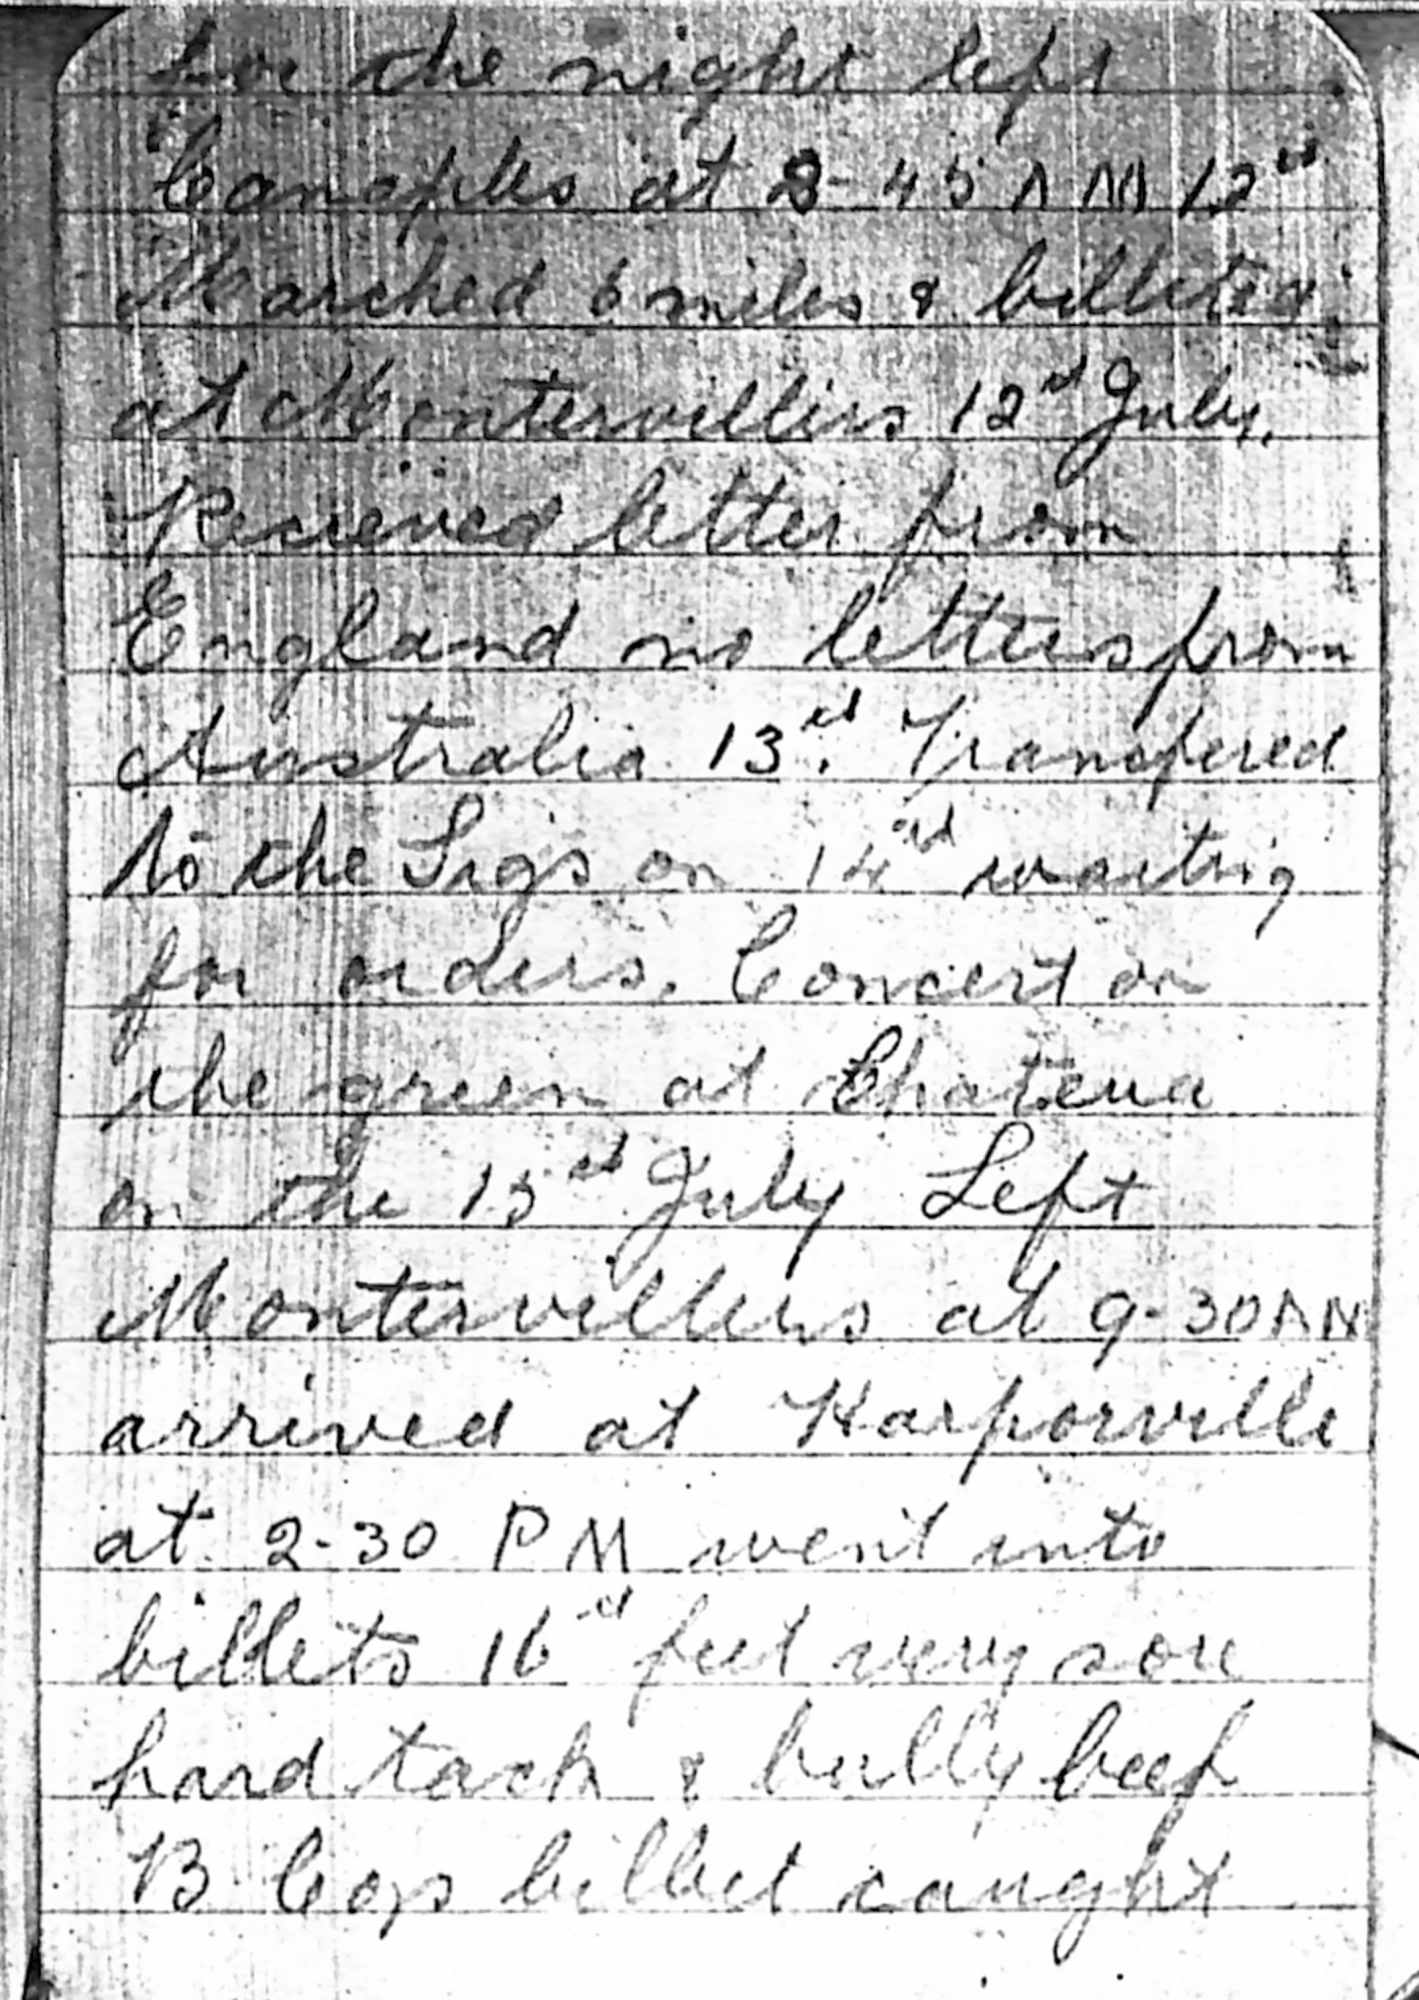 for the night left
Canaples at 8-45 AM 12th
Marched 6 miles & billeted
at Montervilliers 12th July.
Recieved letter from
England no letters from
Australia 13th. Transfered
to the Sigs on 14th waiting
for orders. Concert on
the green at Chateua
on the 15th July Left
Montervillers at 9-30 AM
arrived at Harporville
at 2-30 PM went into
billets 16th feet very sore
hard tack & bully beef
B Coys billet caught